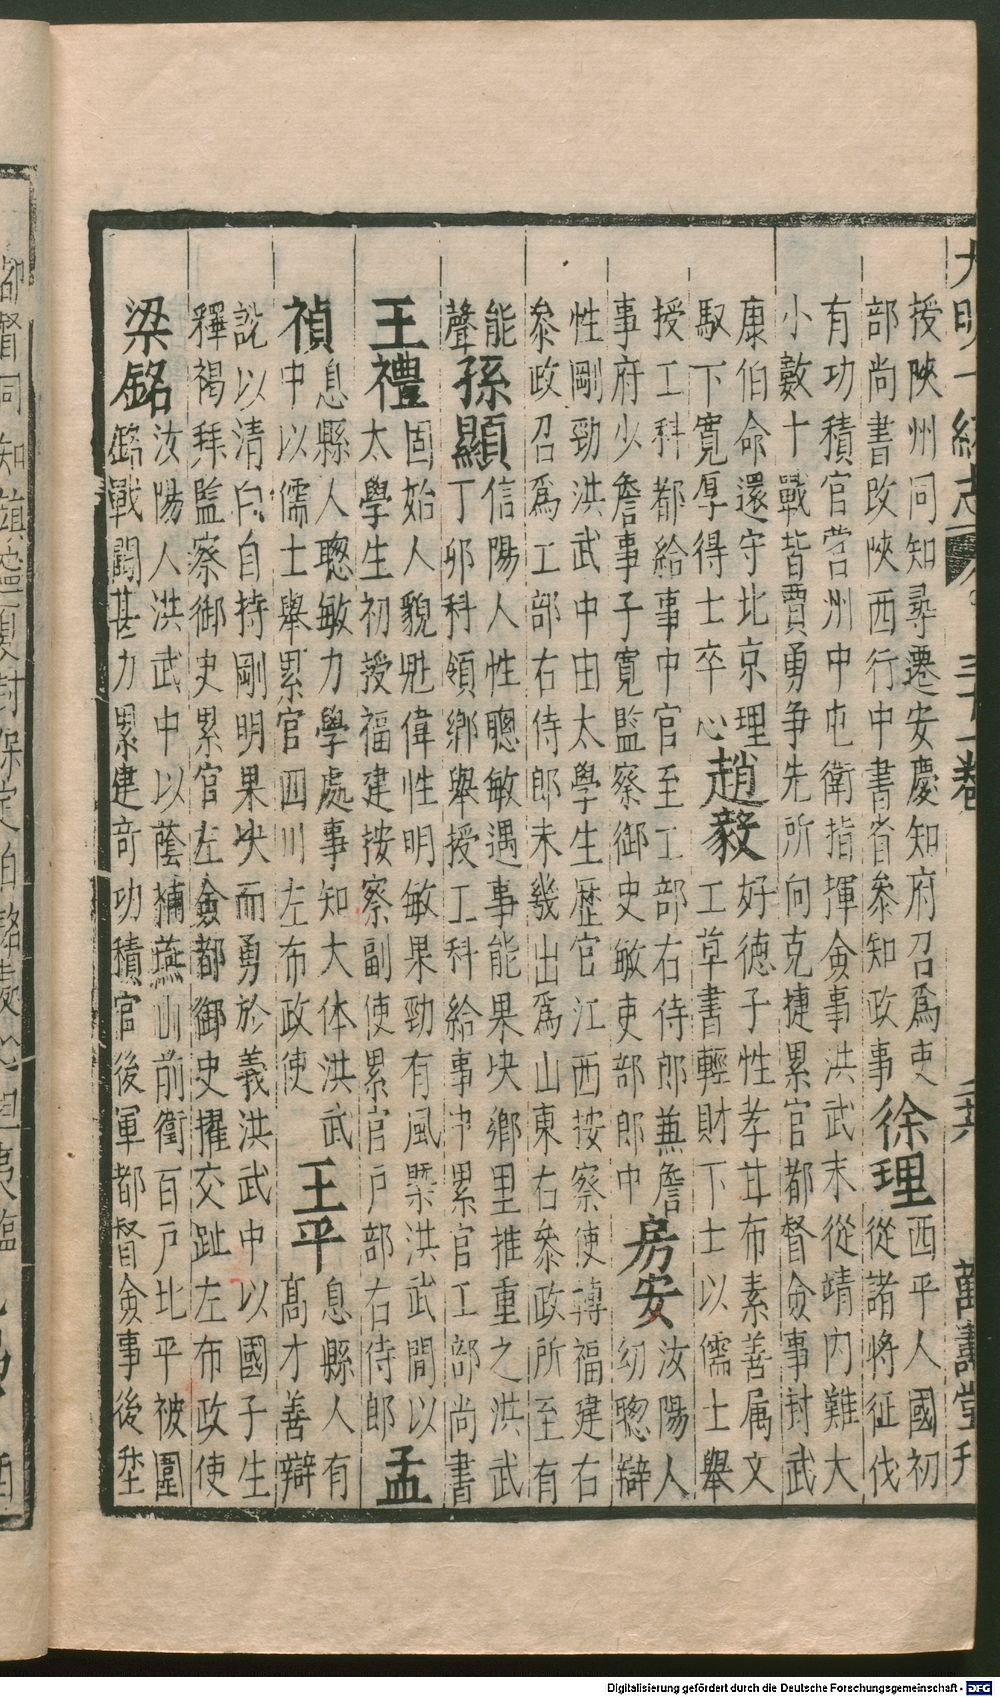 大明一統志 三十一卷 二十六 萬壽堂刊
授陝州同知尋遷安慶知府召爲吏
部尚書改陝西行中書省叅知政事
徐理
西平人國初
從諸將征伐
有功積官营州中屯衛指揮僉事洪武末從靖内難大
小數十戰皆賈勇争先所向克捷累官都督僉事封武
康伯命還守北京理
馭下寬厚得士卒心
趙毅
好德子性孝甘布素善属文
工草書輕財下士以儒士舉
授工科都給事中官至工部右侍郎兼詹
事府少詹事子寬監察御史敏吏部郎中
房安
汝陽人
幼聦辯
性剛勁洪武中由太學生歷官江西按察使轉福建右
叅政召爲工部右侍郎未幾出爲山東右叅政所至有
能
聲
孫顯
信陽人性聰敏遇事能果决鄉里推重之洪武
丁卯科領鄉舉授工科給事中累官工部尚書
王禮
固始人貌魁偉性明敏果勁有風槩洪武間以
太學生初授福建按察副使累官户部右侍郎
孟
禎
息縣人聦敏力學處事知大体洪武
中以儒士舉累官四川左布政使
王平
息縣人有
髙才善辯
說以清白自持剛明果决而勇於義洪武中以國子生
釋褐拜監察御史累官左僉都御史擢交趾左布政使
梁銘
汝陽人洪武中以蔭補燕山前衛百户北平被圍
銘戰鬭甚力累建竒功積官後軍都督僉事後坐
都督同知
Digitalisierung gefördert durch die Deutsche Forschungsgemeinschaft - DFG